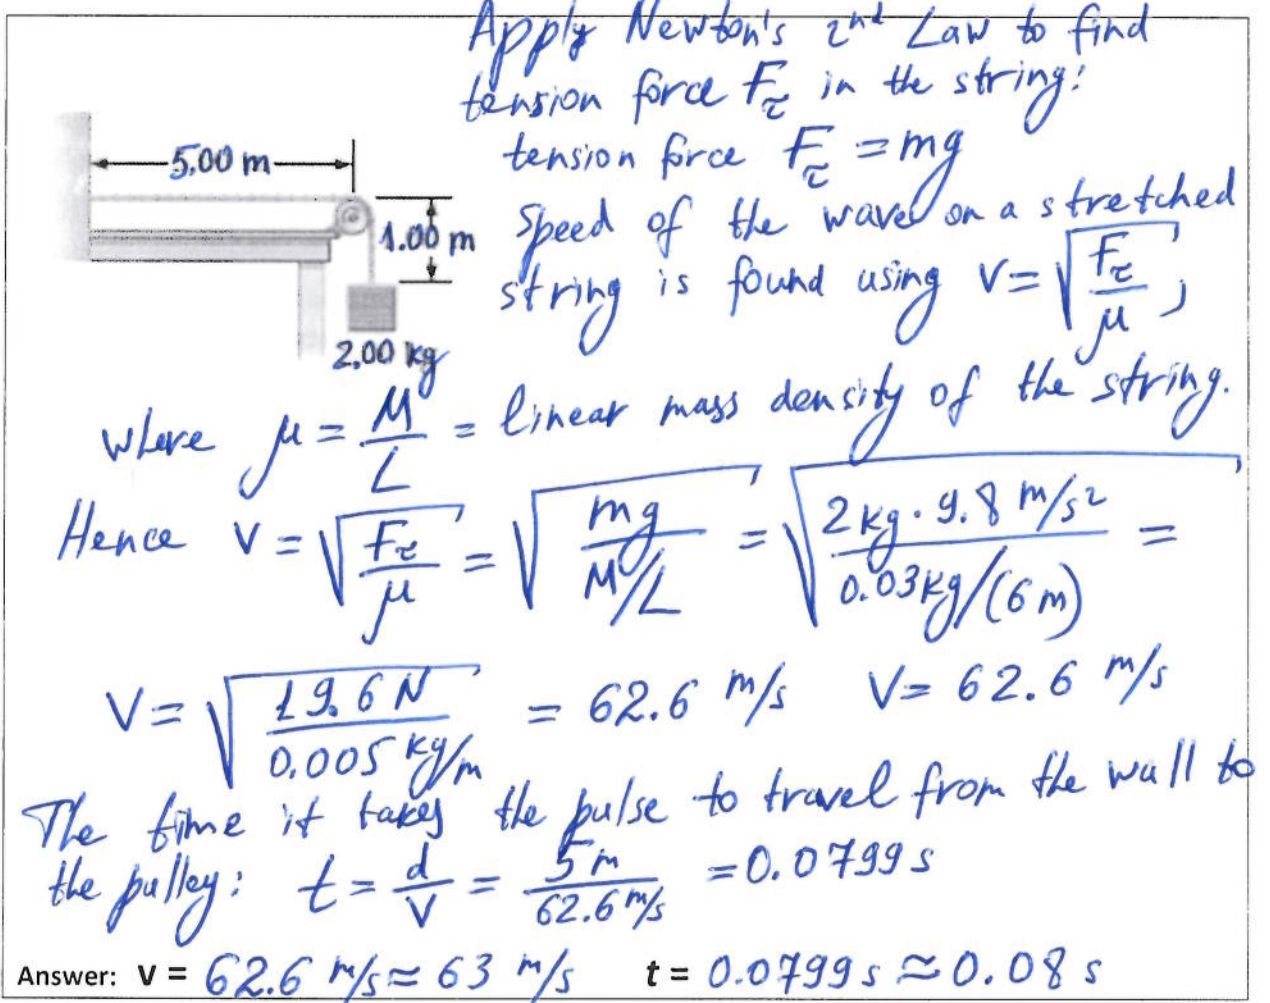 Apply Newton's 2nd Law to find
tension force F_τ in the string:
tension force F_τ = mg
5.00 m
1.00 m
2.00 kg
speed of the wave on a stretched
string is found using v = √(F_τ/μ),
where μ = M/L = linear mass density of the string.
Hence v = √(F_τ/μ) = √(mg/(M/L)) = √(2 kg · 9.8 m/s²/(0.03 kg/(6 m))) =
V = √(19.6 N/0.005 kg/m) = 62.6 m/s V = 62.6 m/s
The time it takes the pulse to travel from the wall to
the pulley: t = d/v = 5 m/62.6 m/s = 0.0799 s
Answer: v = 62.6 m/s ≈ 63 m/s t = 0.0799 s ≈ 0.08 s